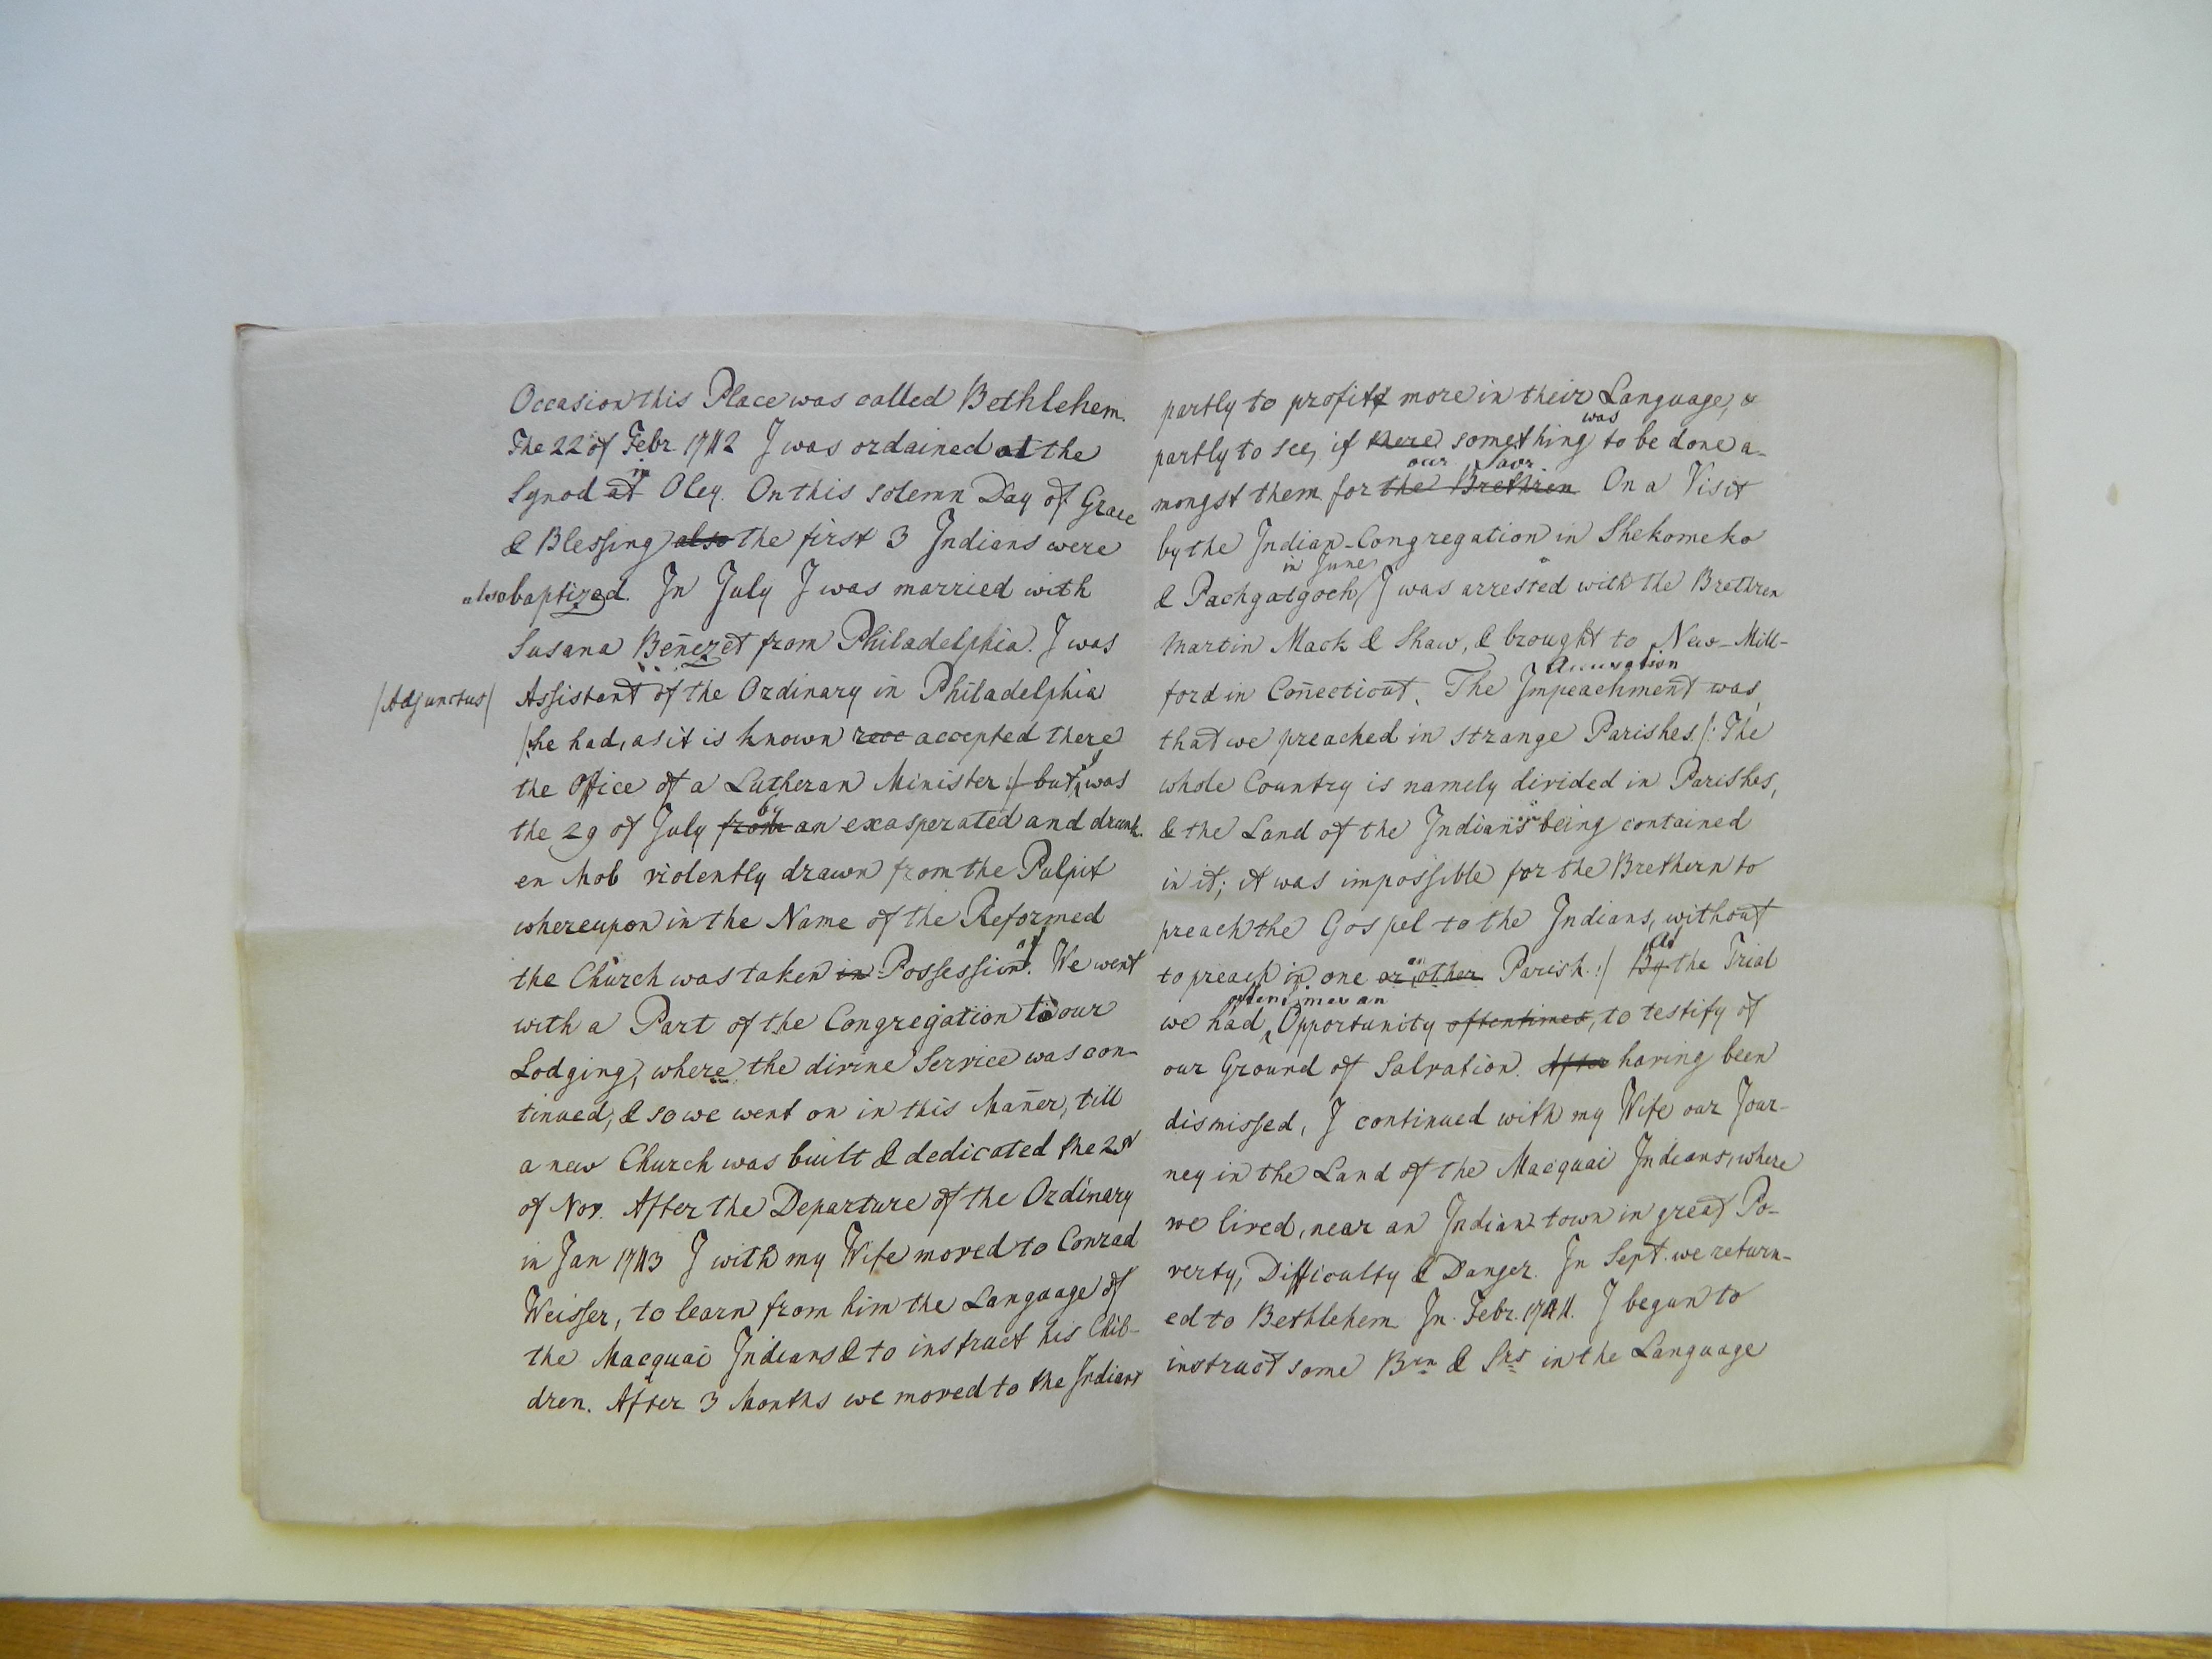 Occasion this Place was called Bethlehem.
The 22 of Febr 1742 I was ordained at the
Synod at in Oley. On this solemn Day of Grace
& Blessing also the first 3 Indians were
also baptized. In July I was married with
Susana Benezet from Philadelphia. I was
/Adjunctus/ Assistant of the Ordinary in Philadelphia
/:he had, as it is known rece accepted there
the Office of a Lutheran Minister:/ but, was
the 29 of July from by an exasperated and drunk-
en Mob violently drawn from the Pulpit
whereupon in the Name of the Reformed
the Church was taken in Possession of. We went
with a Part of the Congregation to our
Lodging, where the divine Service was con-
tinued, & so we went on in this Mañer, till
a new Church was built & dedicated the
of Nov. After the Departure of the Ordinary
in Jan 1743 I with my Wife moved to Conrad
Weisser, to learn from him the Language of
the Macquai Indians & to instruct his Chil-
dren. After 3 Months we moved to the Indians
partly to profit more in their Language, &
partly to see, if there something was to be done a-
mongst them for the Brethren our Savr. On a Visit
by the Indian-Congregation in Shekomeko
& Pachgatgoch in June I was arrested with the Brethren
Martin Mack & Shaw, & brought to New-Mill-
ford in Coñecticut. The Impeachment Accusation was,
that we preached in strange Parishes /: The
whole Country is namely divided in Parishes,
& the Land of the Indians being contained
in it; it was impossible for the Brethern to
preach the Gospel to the Indians, without
to preach in one or an other Parish :/ By At the Trial
we had oftentimes an Opportunity oftentimes, to testify of
our Ground of Salvation. After having been
dismissed, I continued with my Wife our Jour-
ney in the Land of the Macquai Indians, where
we lived, near an Indian town in great Po-
verty, Difficulty & Danger. In Sept. we return-
ed to Bethlehem In Febr. 1744. I began to
instruct some Brn & Srs in the Language